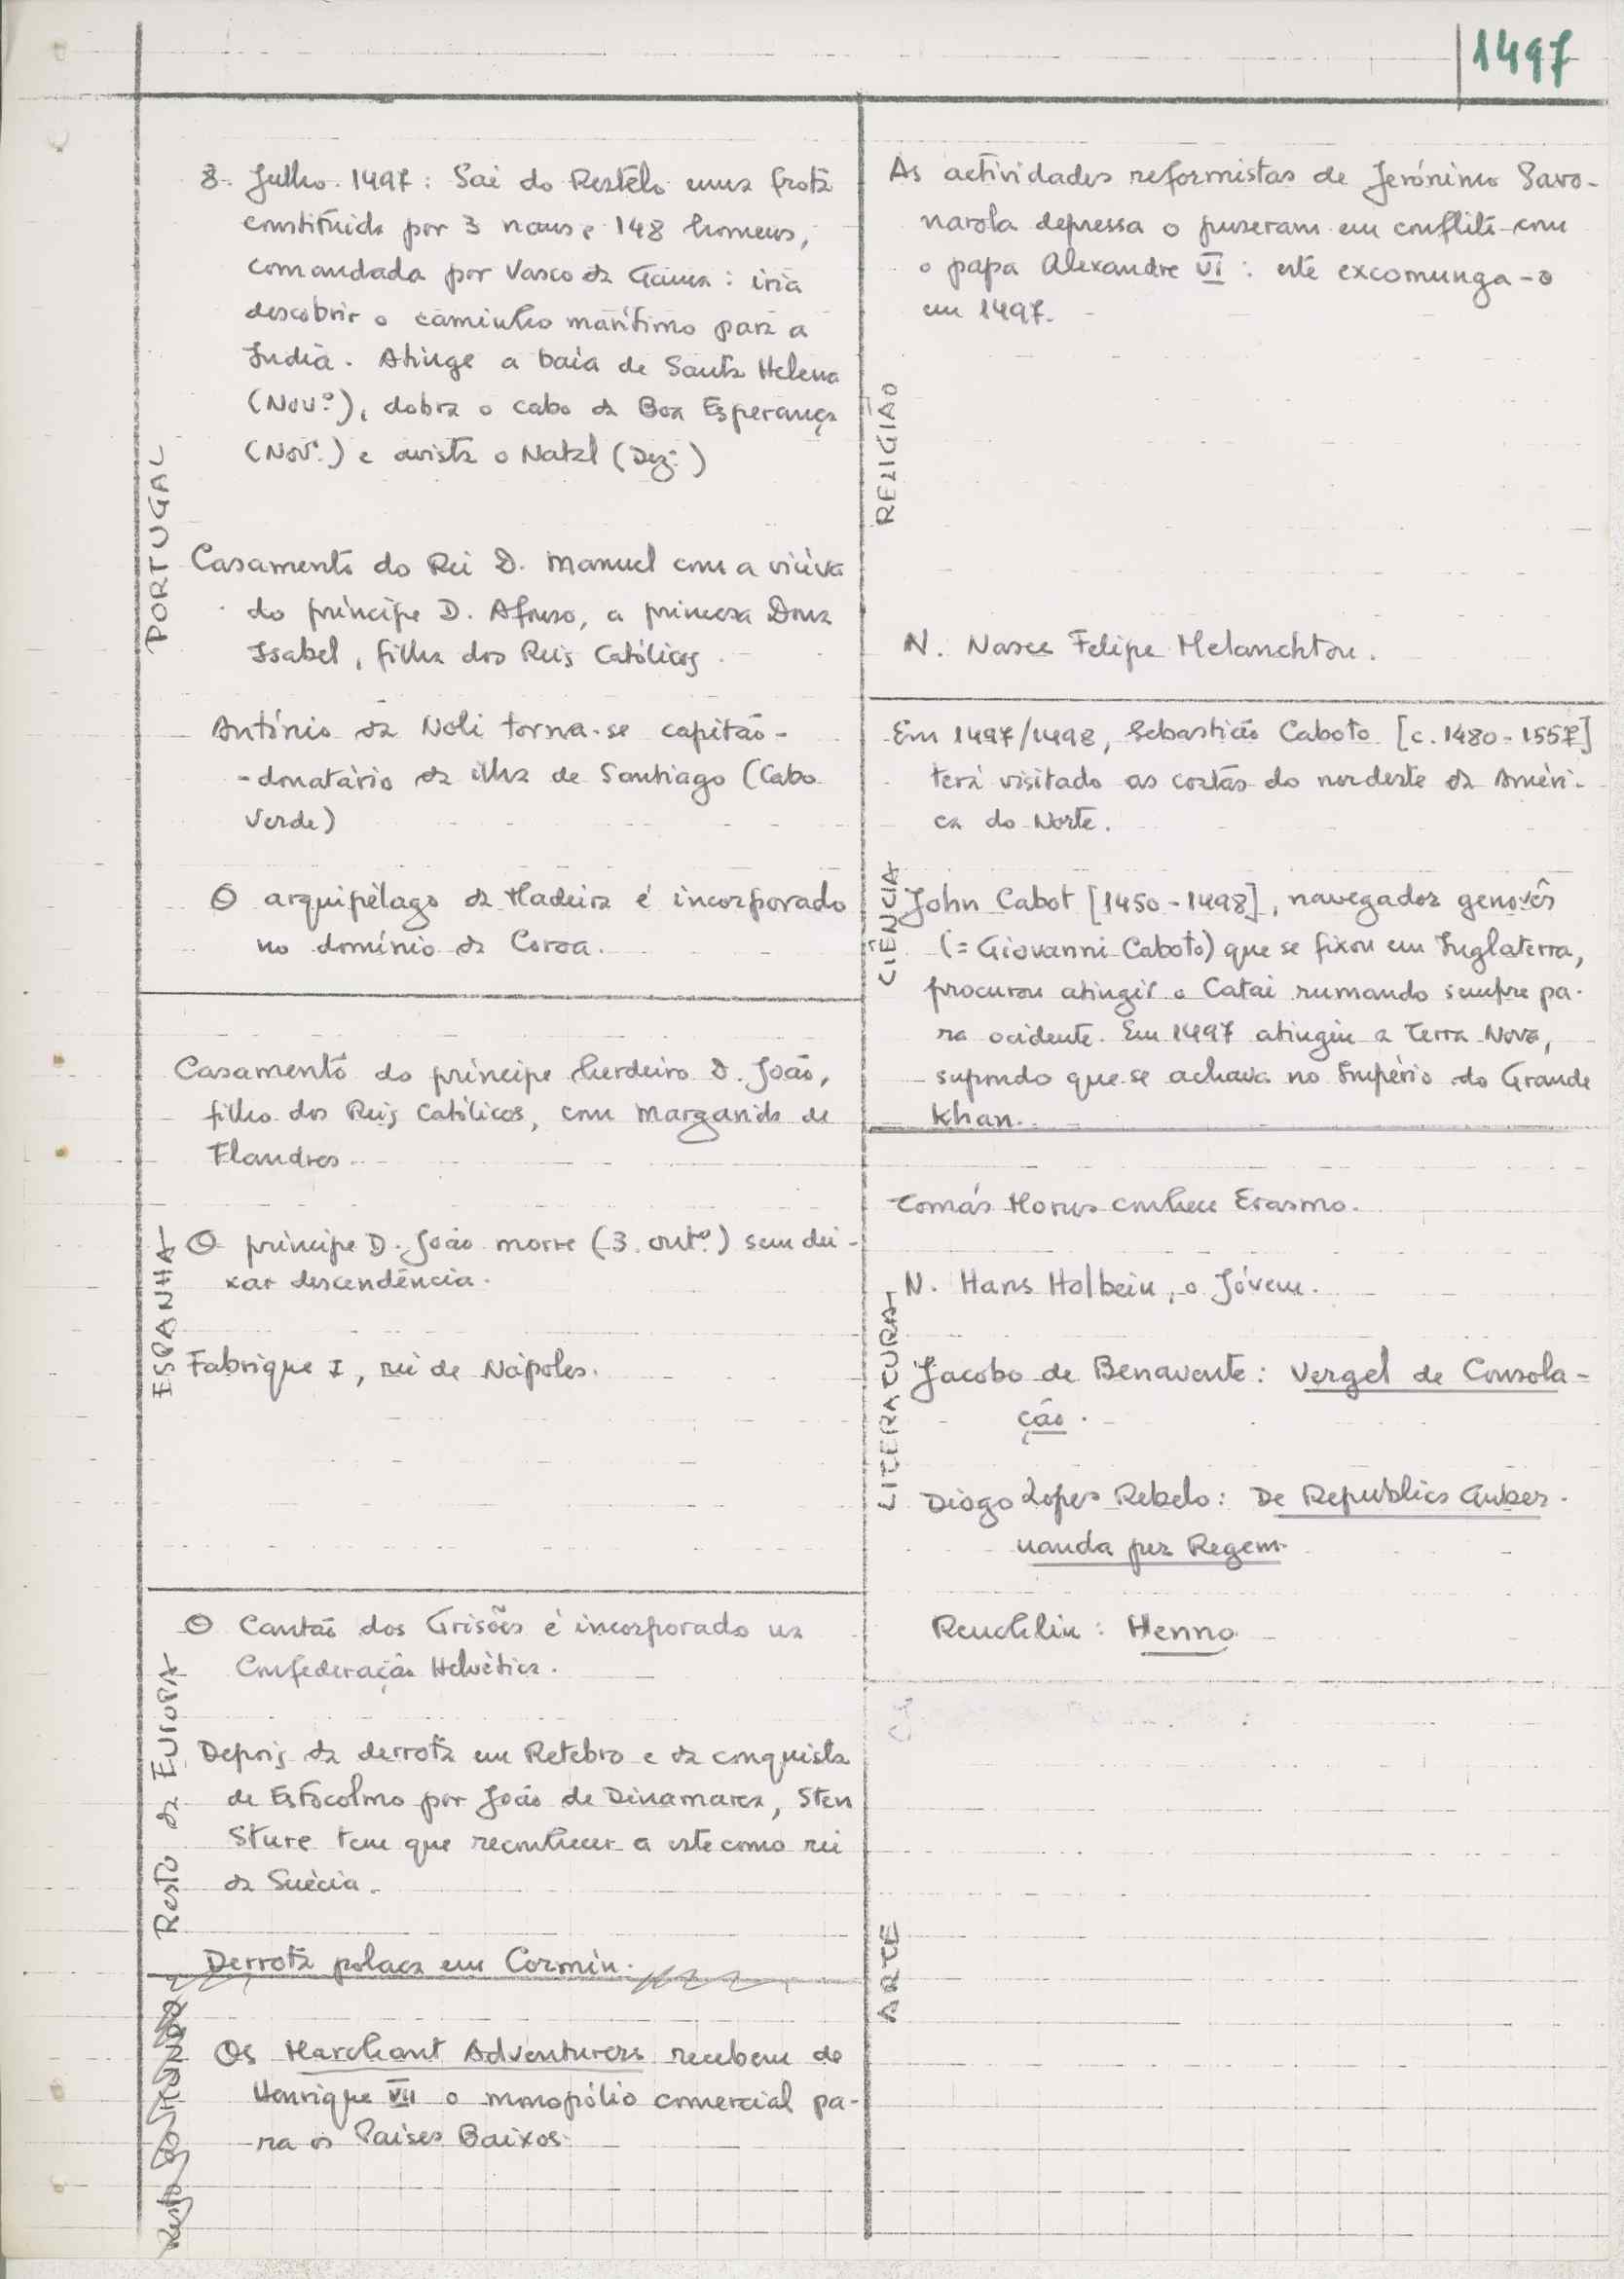 1497
PORTUGAL
8. Julho. 1497: Sai do Restelo uma frota
constituida por 3 naus e 148 homens,
comandada por Vasco da Gama: iria
descobrir o caminho marítimo para a
India. Atinge a baía de Santa Helena
(Nov.º), dobra o cabo da Boa Esperança
(Nov.º) e avista o Natal (Dez.º)
Casamento do Rei D. Manuel com a viúva
do príncipe D. Afonso, a princesa Dona
Isabel, filha dos Reis Católicos.
António da Noli torna-se capitão-
-donatário da ilha de Santiago (Cabo
Verde)
O arquipélago da Madeira é incorporado
no domínio da Coroa.
ESPANHA
Casamento do príncipe herdeiro D. João,
filho dos Reis Católicos, com Margarida de
Flandres.
O príncipe D. João morre (3. outº.) sem dei-
xar descendência.
Fabrique I, rei de Nápoles.
Resto da EUROPA
O Cantão dos Grisões é incorporado na
Confederação Helvética.
Depois da derrota em Retebro e da conquista
de Estocolmo por João de Dinamarca, Sten
Sture tem que reconhecer a este como rei
da Suécia.
Derrota polaca em Cormin.
Resto do MUNDO
Os Marchant Adventurers recebem de
Henrique VII o monopólio comercial pa-
ra os Países Baixos.
RELIGIÃO
As actividades reformistas de Jerónimo Savo-
narola depressa o puseram em conflito com
o papa Alexandre VI: este excomunga-o
em 1497.
N. Nasce Felipe Melanchton.
CIÊNCIA
Em 1497/1498, Sebastião Caboto [c. 1480-1557]
terá visitado as costas do nordeste da Améri-
ca do Norte.
John Cabot [1450-1498], navegador genovês
(= Giovanni Caboto) que se fixou em Inglaterra,
procurou atingir o Catai rumando sempre pa-
ra ocidente. Em 1497 atingiu a Terra Nova,
supondo que se achava no Império do Grande
Khan.
LITERATURA
Tomás Morus conhece Erasmo.
N. Hans Holbein, o Jóvem.
Jacobo de Benavente: Vergel de Consola-
ção.
Diogo Lopes Rebelo: De Republica Guber-
nanda per Regem.
Reuchlin: Henno
ARTE